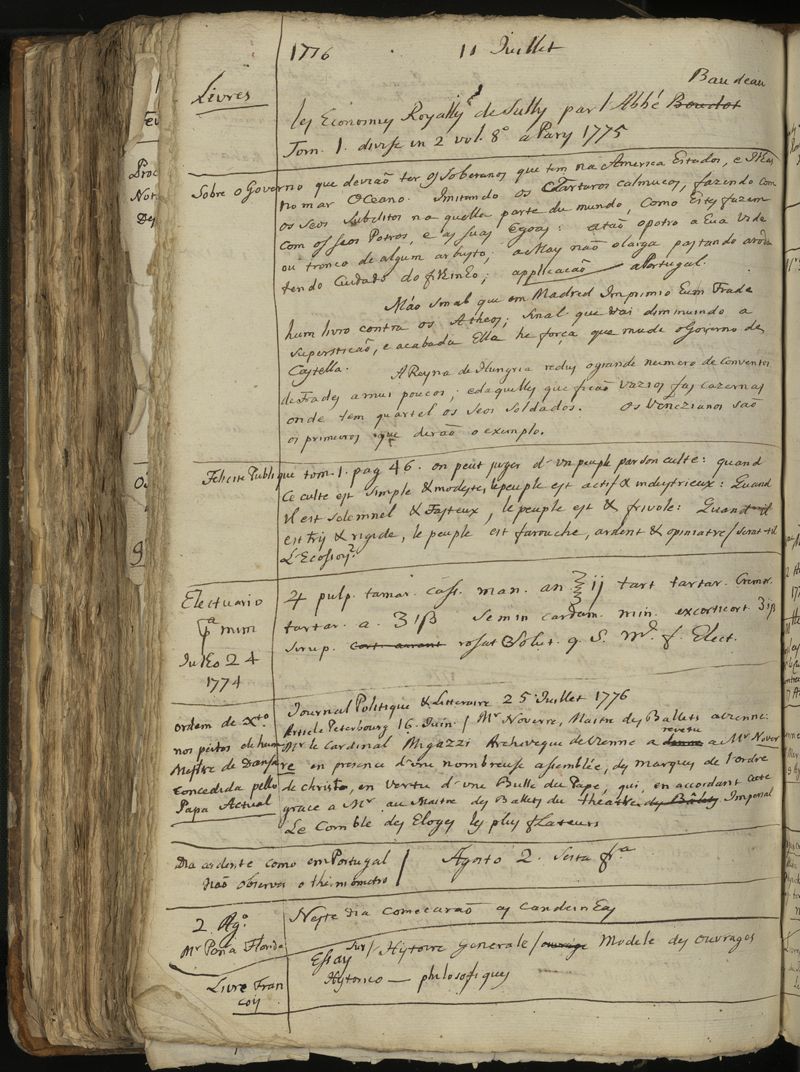 1776 11 Juillet
Livres
Baudeau
les Economies Royalles de Sully par l'Abbé Boudot
Tom. 1. divise en 2 vol. 8º a Parys 1775
Sobre o Governo que devião ter os Soberanos que tem na America Estados, e Ilhas
no mar Oceano. Imitando os Tartaros calmucos, fazendo com
os seos subditos naquella parte du mundo, como Estes fazem
com os seos Potros, e as suas Egoas: atão o potro a Eua vide
ou tronco de algum arbusto. a May não o larga pastando aroda
tendo Cuidado do filinho; applicacão a Portugal.
Não sinal que em Madrid Imprimio Eum Frade
hum livro contra os Atheos; sinal que vai diminuindo a
superstição, e acabada Ella he força que mude o Governo de
Castella.
A Rayna de Hungria reduz o grande numero de Conventos
de Frades a mui poucos; e daquelles que ficão vazios faz cazernas
onde tem quartel os seos soldados. Os Venezianos são
os primeiros que derão o exemplo.
Felicite Publique tom. 1. pag 46. on peut juger d'un peuple par son culte: quand
Ce culte est simple & modeste, le peuple est actif & industrieux: Quand
il est solemnel & Fasteux, le peuple est & frivole: Quand il
est tris & rigide, le peuple est farouche, ardent & opiniatre / serat-il
L'Ecossois?
Electuario
pª mim
Julho 24
1774
♃ pulp. tamar. cass. man. an ℥ij tart tartar. Cremor.
tartar. a. ʒiß Semin cardam. min. excorticort ʒiß
Sirup. rosat Solut. q. S. mᵈ. f. Elect.
Ordem de Xto.
nos peitos de hum
Mestre de Dansa
Concedida pello
Papa Actual
Journal Politique & Litteraire 25 Juillet 1776
Article Petersbourg 16. Juin. / Mr Noverre, Maitre des Ballets a Vienne.
Mgr le Cardinal Migazzi Archeveque de Vienne a revetu a Mr Nover
re en presence d'une nombreuse assemblée, des marques de l'ordre
de christo, en vertu d'une Bulle du Pape, qui, en accordant cette
grace a Mr au Maitre des Ballets du theatre des Bâlets Imperial
Le Comble des Eloges les plus flateurs
Dia ardente como em Portugal
Não observei o thermometro
Agosto 2. Sesta frª
2. Agº
Mr Peña Florida
Neste dia começarão as candeinhas
Livre Fran
çois
Essay sur / Hystoire Generale / ouvrage Modele des ouvrages
Hystorico — philosofiques